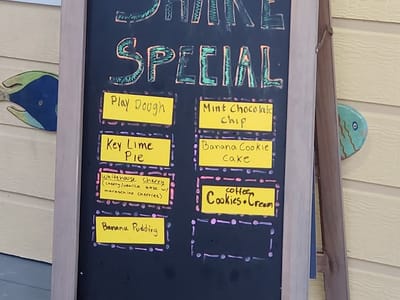 SHAKE
SPECIAL
Play Dough
Key Lime
Pie
Whitehouse Cherry
(cherry/vanilla base w/
maraschino cherries)
Banana Pudding
Mint Chocolate
chip
Banana Cookie
Cake
coffee
Cookies + Cream